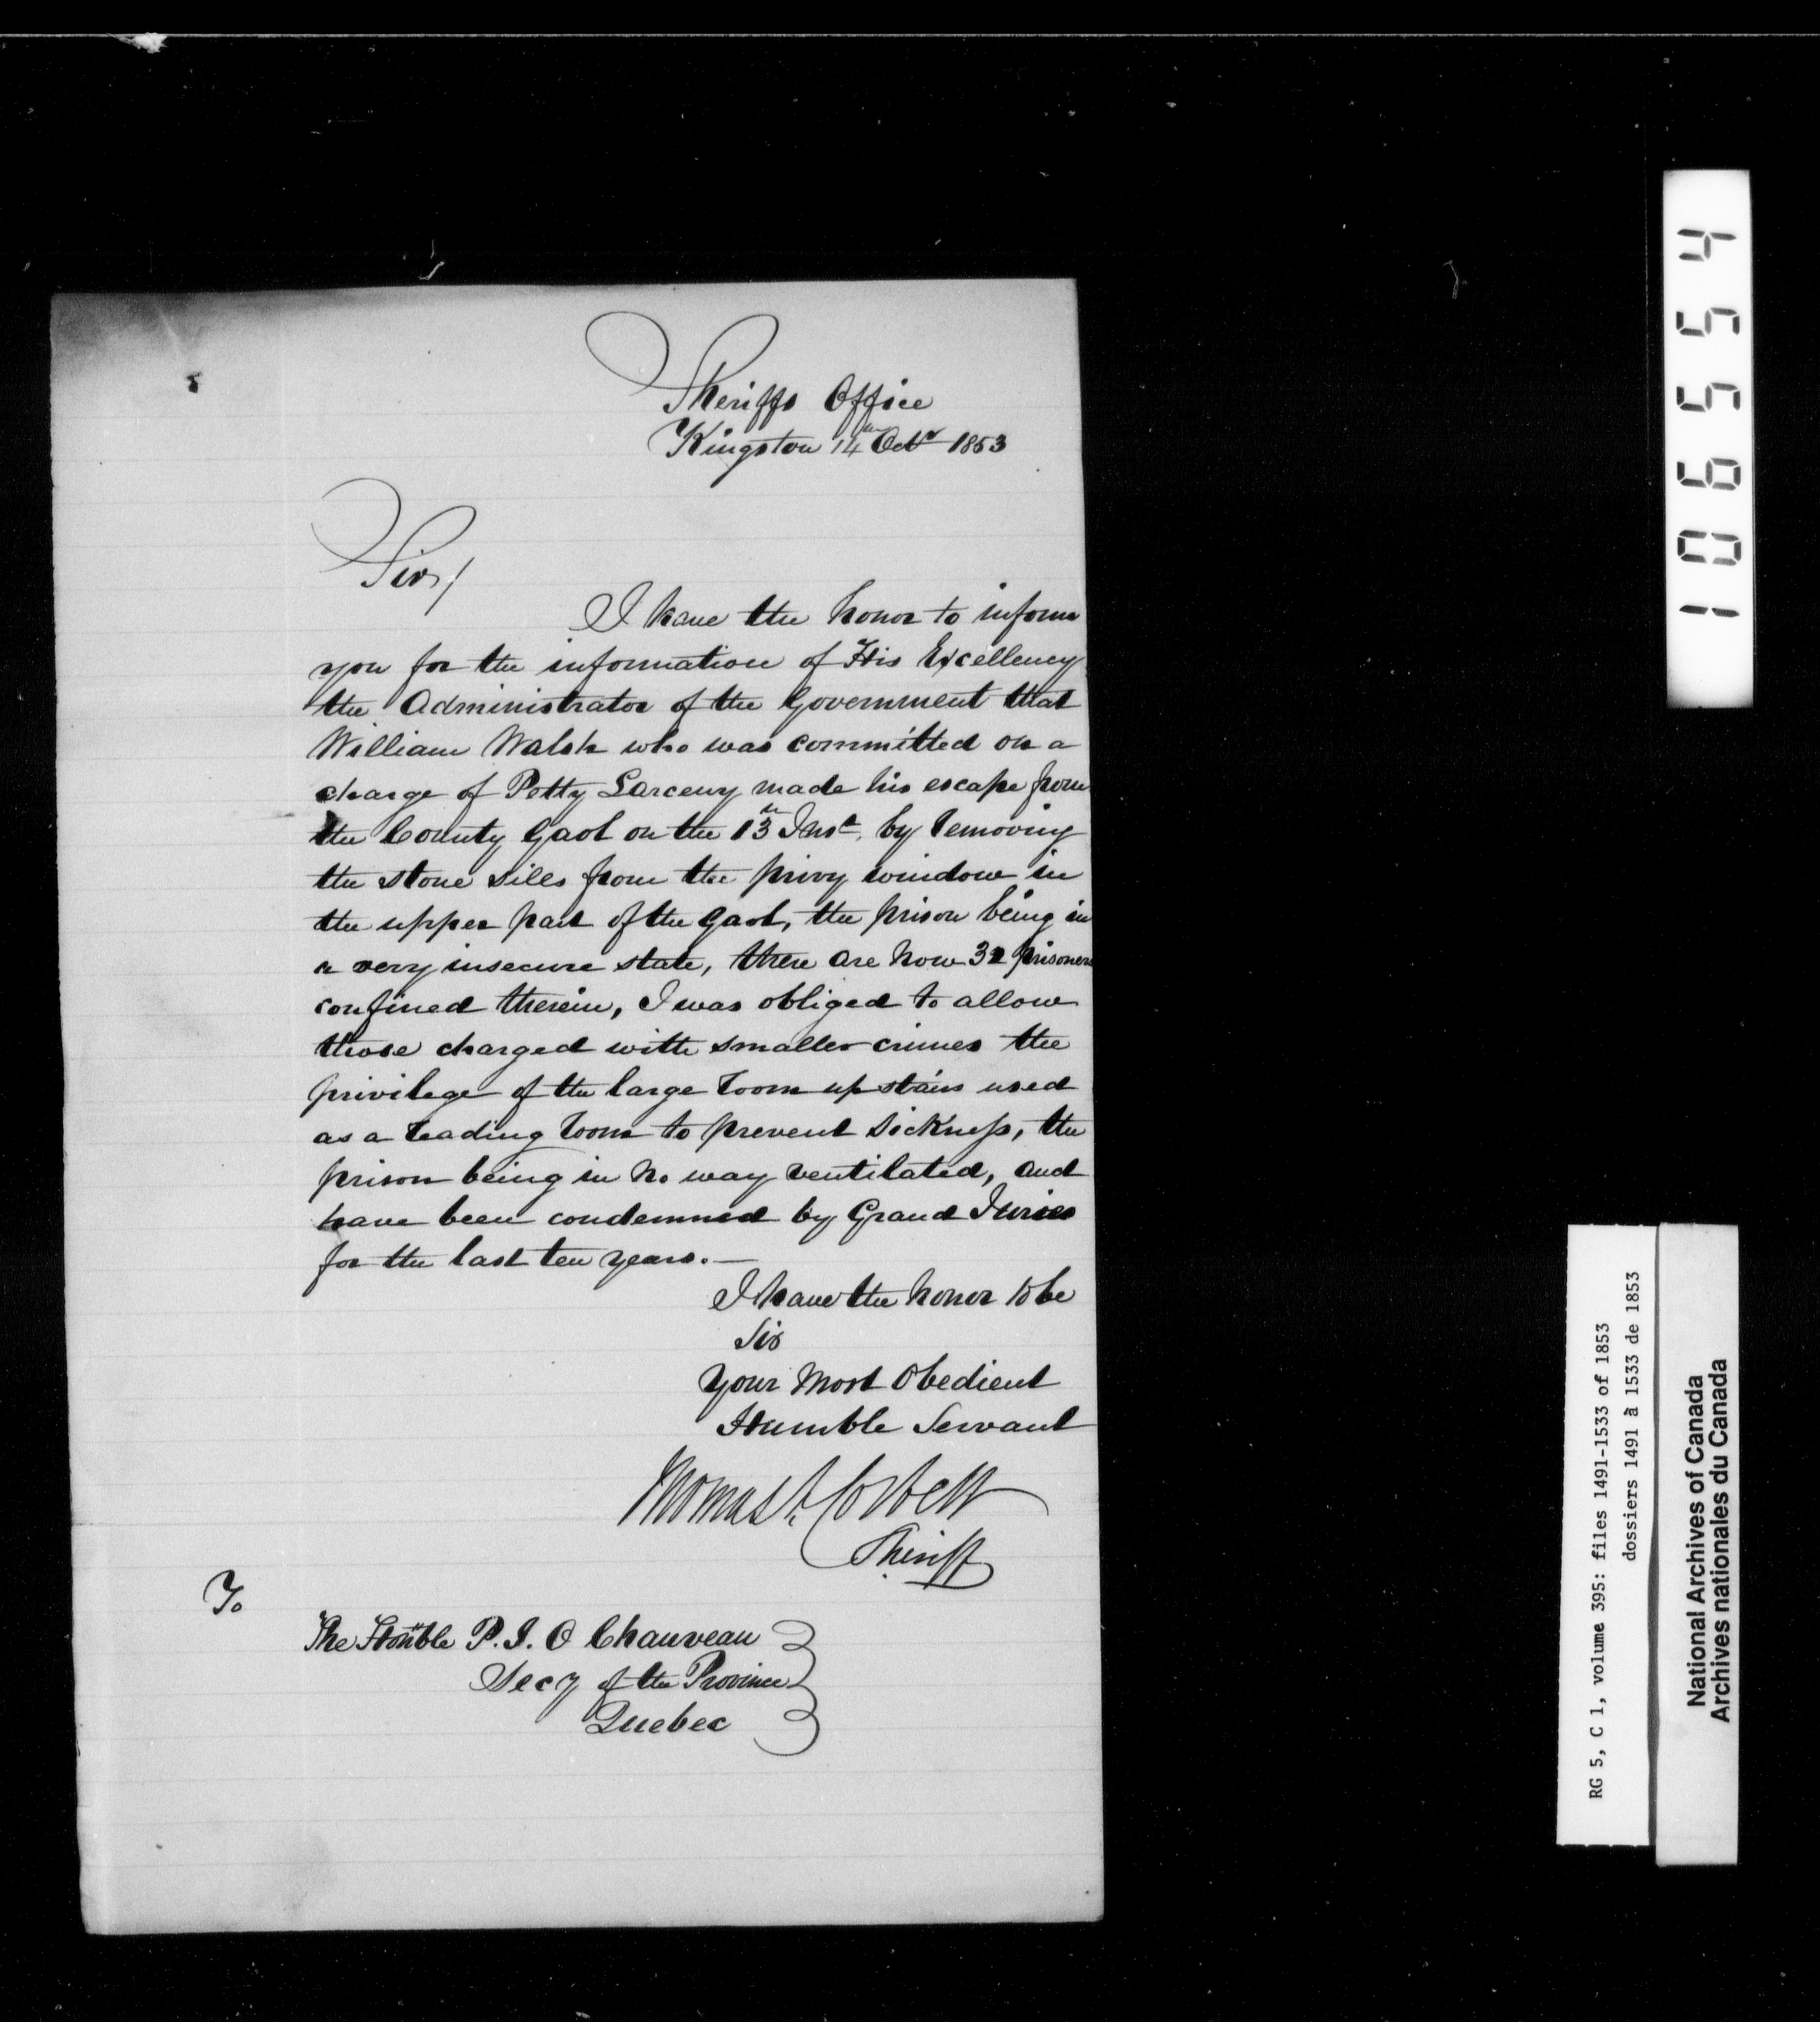 Sheriffs Office
Kingston 14th Octr 1853
Sir/
I have the honor to inform
you for the information of His Excellency
the Administrator of the Government that
William Walsh who was committed on a
charge of Petty Larceny made his escape from
the County Gaol on the 13th Inst. by removing
the stone sills from the privy window in
the upper part of the Gaol, the prison being in
a very insecure state, there are now 32 prisoners
confined therein, I was obliged to allow
those charged with smaller crimes the
privilege of the large room up stairs used
as a reading room to prevent sickness, the
prison being in no way ventilated, and
have been condemned by Grand Juries
for the last ten years.—
I have the honor to be
Sir
Your Most Obedient
Humble Servant
Thomas A. Corbett
Sheriff
To
The Honble P. J. O Chauveau
Secy of the Province
Quebec
106554
RG 5, C 1, volume 395: files 1491-1533 of 1853
dossiers 1491 à 1533 de 1853
National Archives of Canada
Archives nationales du Canada